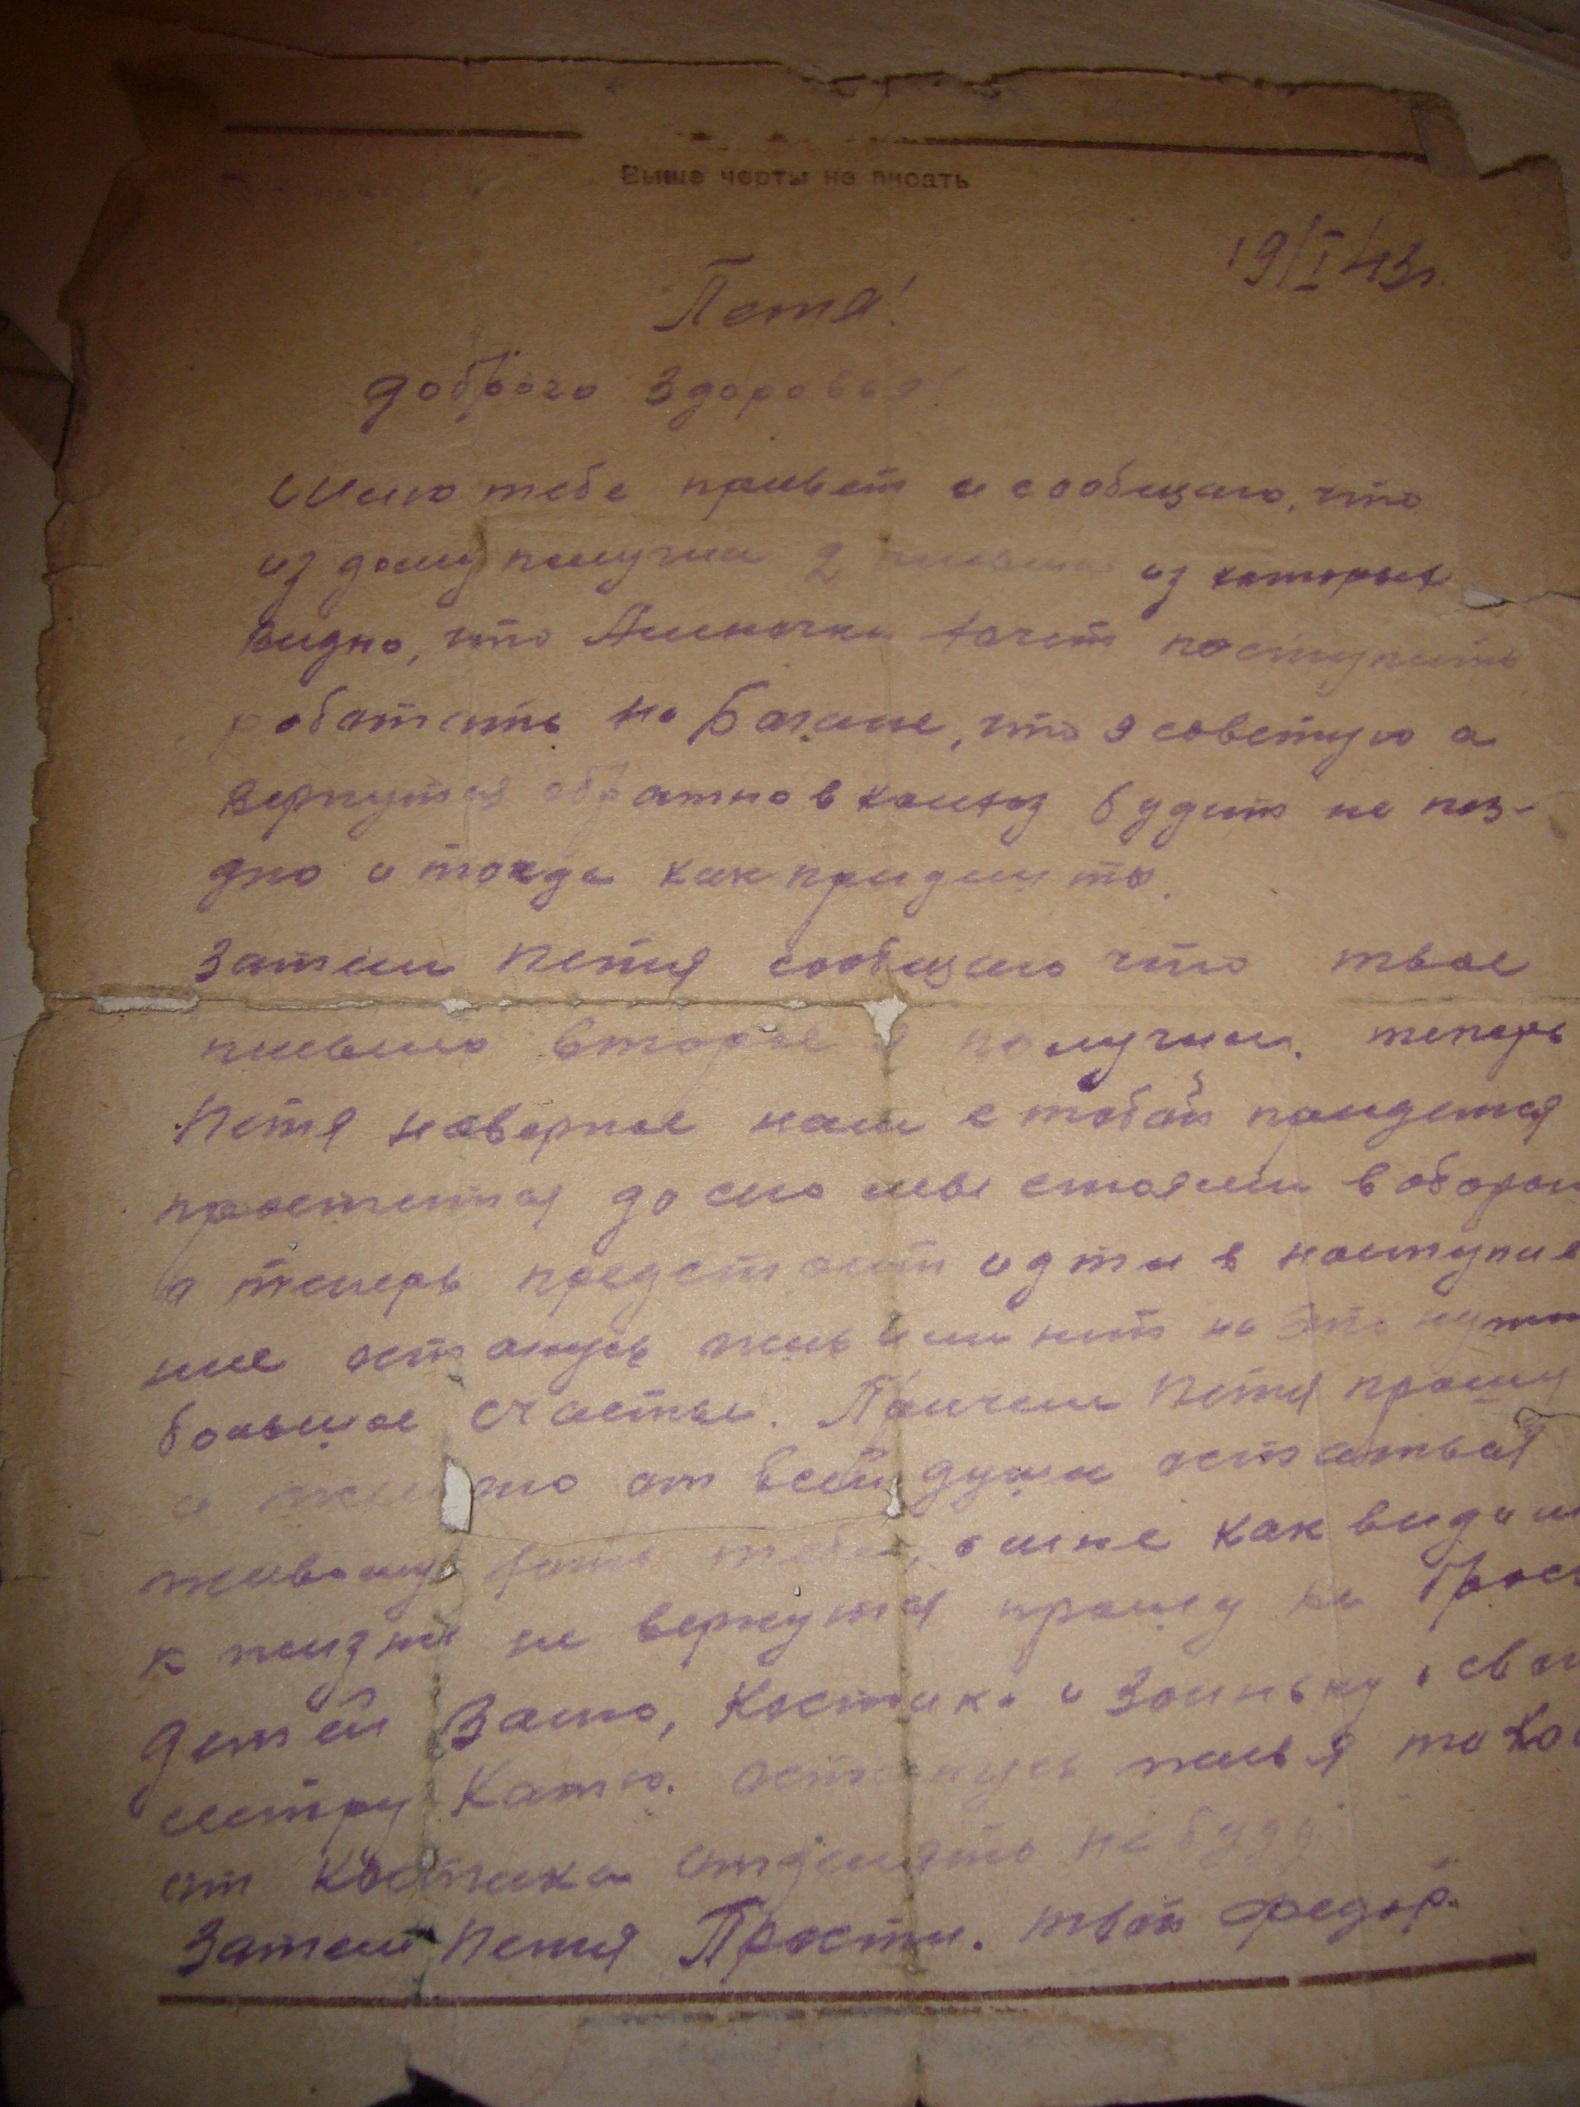 Выше черты не писать
19/I 43г.
Петя!
доброго здоровья!
Шлю тебе привет и сообщаю, что
из дому получил 2 письма из которых
видно, что хочет поступить
работать на что я советую а
вернутся обратно в колхоз будит не поз-
дно и тогда как придеш то.
Затем Петя сообщаю что твое
письмо второе я получил. теперь
Петя наверное нам с тобой придется
простится до сио мы стояли в оборон
а теперь предстоит идти в наступле
ние останусь жив или нет на это нужно
большое счастье. Причем Петя прошу
и желаю от всей души остаться
живому хоть тебе, а мне как видиш
к жизни не вернутся прошу не брось
детей Заню, Костика и Зоиньку и свою
сестру Катю. Останусь жив я то
от Костика отделять не буду
Затем Петя Прости. твой Федор.